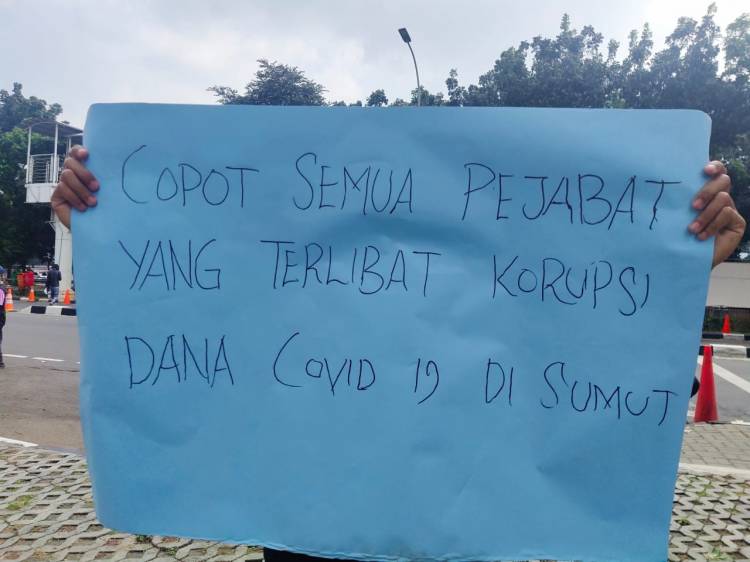 COPOT SEMUA PEJABAT
YANG TERLIBAT KORUPSI
DANA COVID 19 DI SUMUT